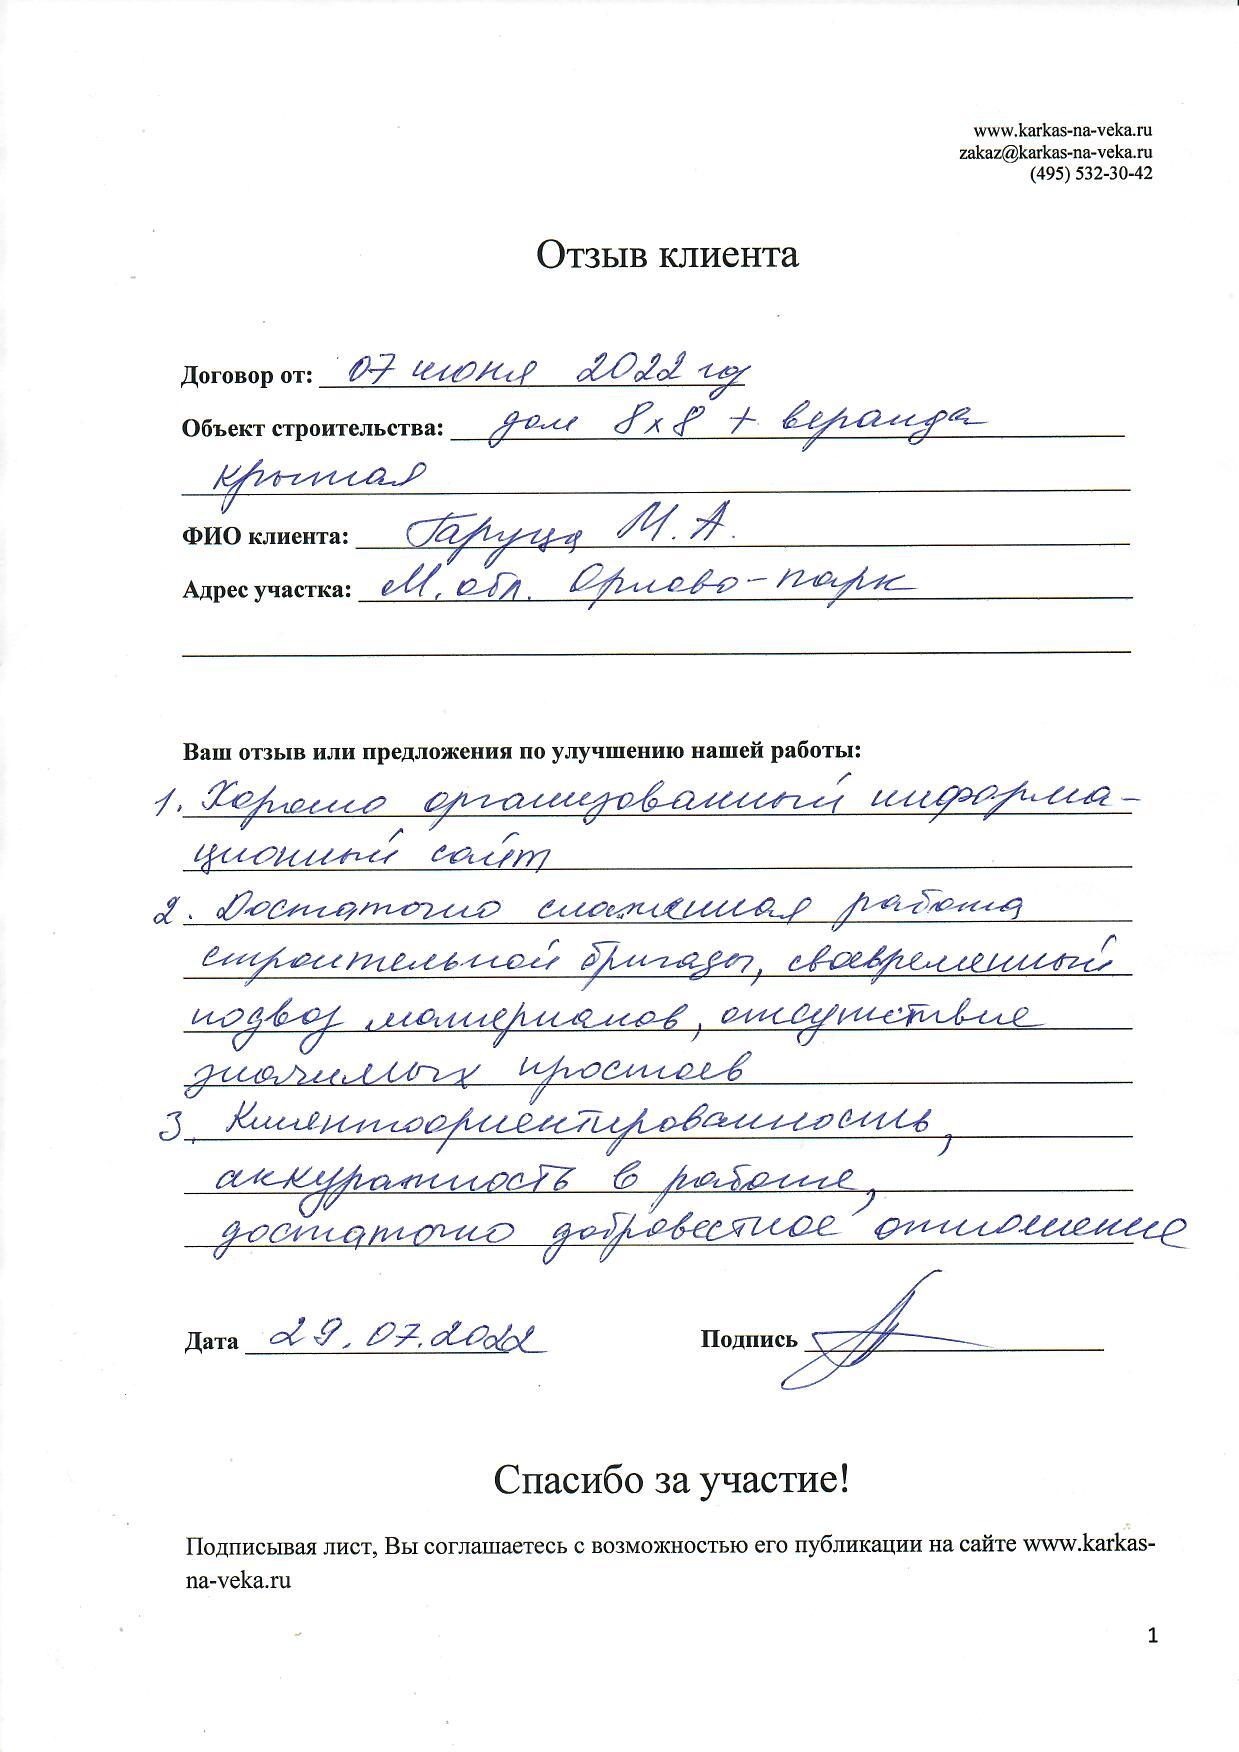 www.karkas-na-veka.ru
zakaz@karkas-na-veka.ru
(495) 532-30-42
Отзыв клиента
Договор от: 07 июня 2022 год
Объект строительства: дом 8х8 + веранда
крытая
ФИО клиента: Гаруца М. А.
Адрес участка: М. обл. Орлово-парк
Ваш отзыв или предложения по улучшению нашей работы:
1. Хорошо организованный информа-
ционный сайт
2. Достаточно слаженная работа
строительной бригады, своевременный
подвоз материалов, отсутствие
значимых простоев
3. Клиентоориентированность,
аккуратность в работе,
достаточно добровестное отношение
Дата 29.07.2022 Подпись
Спасибо за участие!
Подписывая лист, Вы соглашаетесь с возможностью его публикации на сайте www.karkas-
na-veka.ru
1